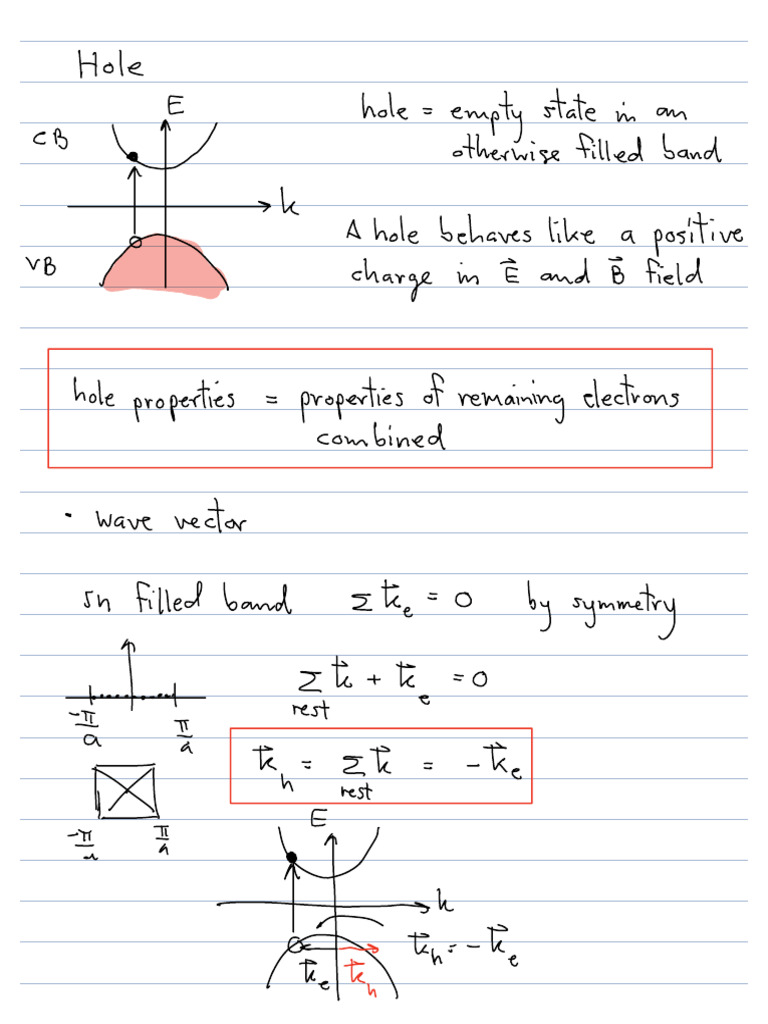 Hole
E
CB
k
VB
hole = empty state in an
otherwise filled band
A hole behaves like a positive
charge in E⃗ and B⃗ field
hole properties = properties of remaining electrons
combined
• wave vector
In filled band Σ k⃗_e = 0 by symmetry
-π/a π/a
Σ_rest k⃗ + k⃗_e = 0
k⃗_h = Σ_rest k⃗ = -k⃗_e
-π/a π/a
E
k
k⃗_h = -k⃗_e
k⃗_e k⃗_h